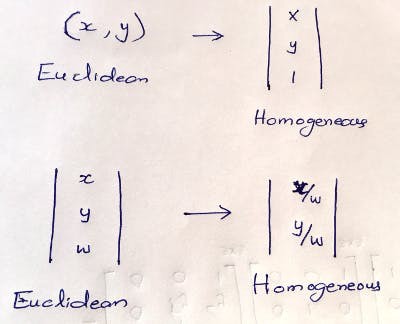 (x, y) → | x |
| y |
| 1 |
Euclidean
Homogeneous
| x |
| y |
| w |
→ | x/w |
| y/w |
Euclidean
Homogeneous